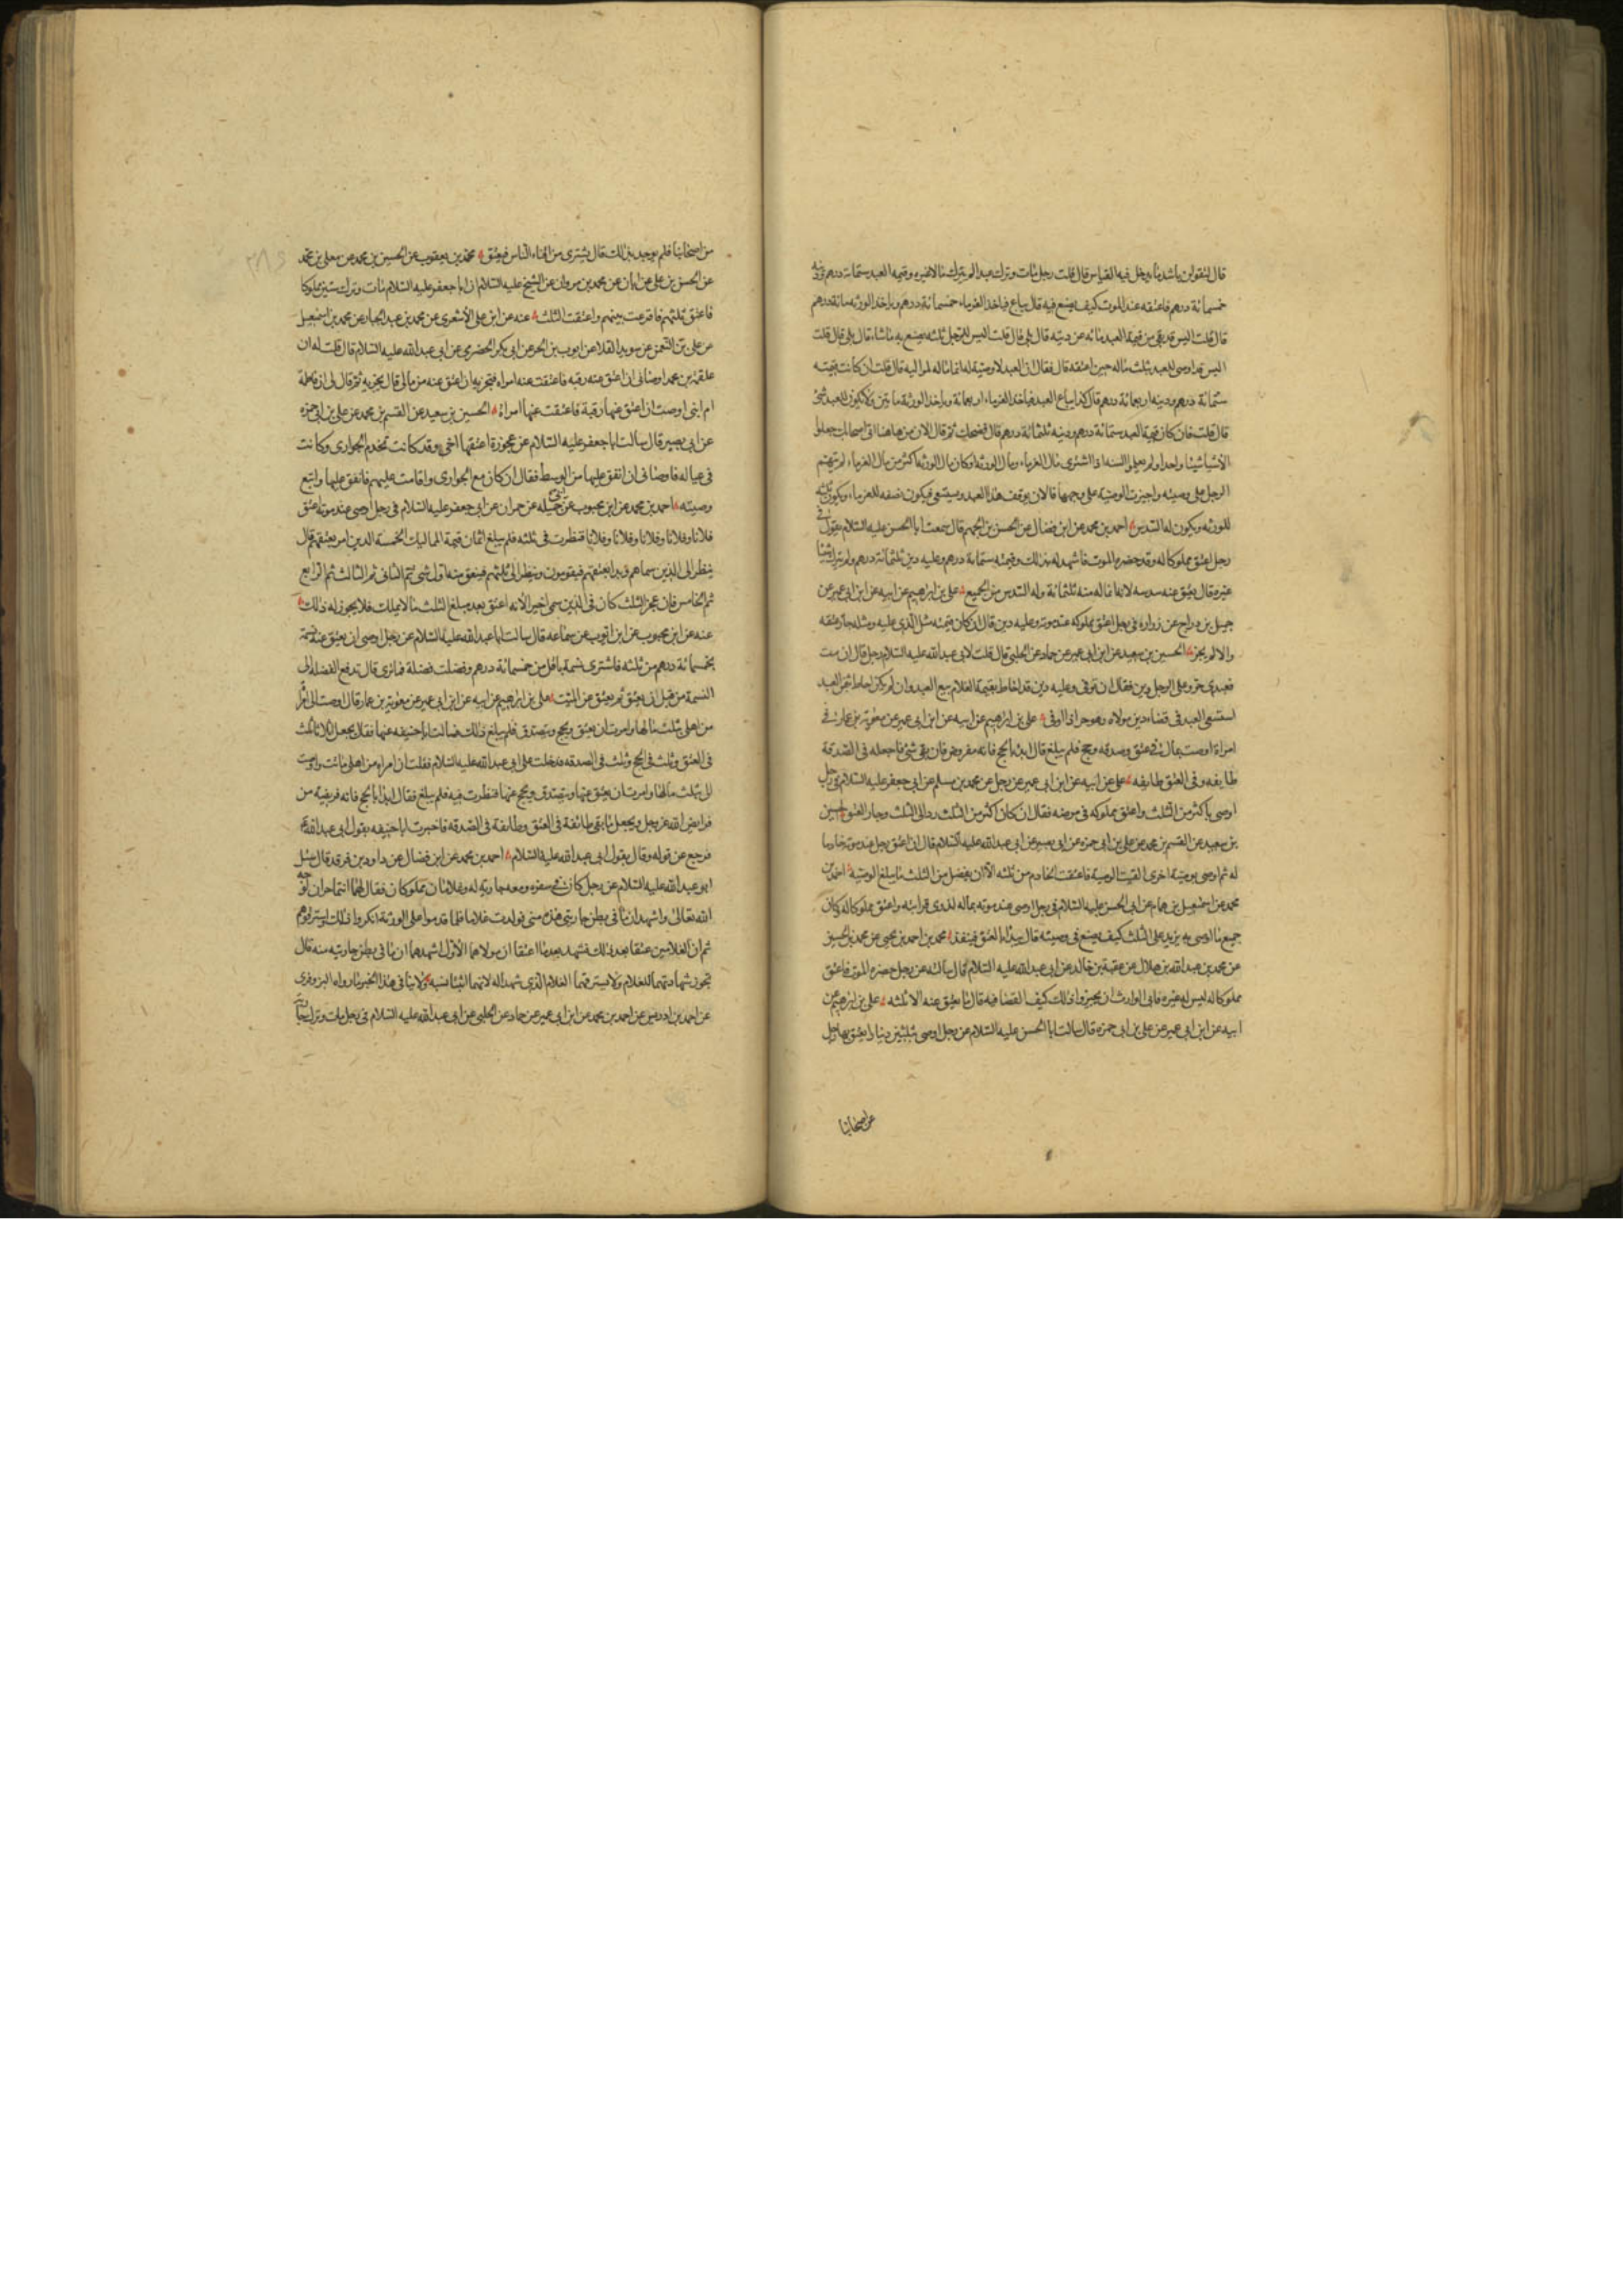 قال لنقولن باشد ما يدخل فيه القياس قال قلت رجل مات وترك عبدا لم يترك مالا غيره وقيمة العبد ستمائة درهم ودينه
خمسمائة درهم فاعتقه عند الموت كيف يصنع فيه قال يباع فياخذ الغرماء خمسمائة درهم وياخذ الورثه مائة درهم
قال قلت اليس قد بقي من قيمة العبد مائه عن دينه قال بلى قال قلت اليس للرجل ثلثه يصنع به ماشاء قال بلى قال قلت
اليس قد اوصى للعبد بثلث ماله حين اعتقه قال فقال ان العبد لا وصية له انما ماله لمواليه قال قلت ان كانت قيمته
ستمائة درهم ودينه اربعمائة درهم قال كذا يباع العبد فياخذ الغرماء اربعمائة وياخذ الورثة مائتين ولا يكون للعبد شئ
قال قلت فان كان قيمة العبد ستمائة درهم ودينه ثلثمائة درهم قال فضحك ثم قال الان من هاهنا اتى اصحابك جعلوا
الاشياء شيئا واحدا ولم يعلموا السنه اذا استوى مال الغرماء ومال الورثه او كان مال الورثه اكثر من مال الغرماء لم يتهم
الرجل على وصيته واجيزت الوصية على وجهها فالان يوقف هذا العبد ويستسعى فيكون نصفه للغرماء ويكون ثلثه
للورثه ويكون له السدس احمد بن محمد عن ابن فضال عن الحسن بن الجهم قال سمعت ابا الحسن عليه السلام يقول في
رجل اعتق مملوكا له وقد حضره الموت فاشهد له بذلك وقيمته ستمائة درهم وعليه دين ثلثمائة درهم ولم يترك شيئا
غيره قال يعتق منه سدسه لانه انما له منه ثلثمائة وله السدس من الجميع علي بن ابرهيم عن ابيه عن ابن ابي عمير عن
جميل بن دراج عن زراره في رجل اعتق مملوكه عند موته وعليه دين قال ان كان قيمته مثل الذي عليه ومثله جاز عتقه
والا لم يجز الحسين بن سعيد عن ابن ابي عمير عن حماد عن الحلبي قال قلت لابي عبد الله عليه السلام رجل قال ان مت
فعبدي حر وعلى الرجل دين فقال ان توفي وعليه دين قد احاط بقيمة الغلام بيع العبد وان لم يكن احاط بثمن العبد
استسعى العبد في قضاء دين مولاه وهو حر اذا اوفى علي بن ابرهيم عن ابيه عن ابن ابي عمير عن معوية بن عمار في
امراة اوصت بمال في عتق وصدقه وحج فلم يبلغ قال ابدا بالحج فانه مفروض فان بقي شئ فاجعله في الصدقة
طايفه وفي العتق طايفه علي عن ابيه عن ابن ابي عمير عن رجل عن محمد بن مسلم عن ابي جعفر عليه السلام في رجل
اوصى باكثر من الثلث واعتق مملوكه في مرضه فقال ان كان اكثر من الثلث رد الى الثلث وجاز العتق الحسين
بن سعيد عن القسم بن محمد عن علي بن ابي حمزه عن ابي بصير عن ابي عبد الله عليه السلام قال ان اعتق رجل عند موته خادما
له ثم اوصى بوصية اخرى القيت الوصية فاعتقت الخادم من ثلثه الا ان يفضل من الثلث ما يبلغ الوصية احمد بن
محمد عن اسمعيل بن همام عن ابي الحسن عليه السلام في رجل اوصى عند موته بماله لذوي قرابته واعتق مملوكا له وكان
جميع ما اوصى به يزيد على الثلث كيف يصنع في وصيته قال يبدا بالعتق فينفذ محمد بن احمد بن يحيى عن محمد بن الحسين
عن محمد بن عبد الله بن هلال عن عقبة بن خالد عن ابي عبد الله عليه السلام قال سالته عن رجل حضره الموت فاعتق
مملوكا له ليس له غيره فابى الوارث ان يجيزوا ذلك كيف القضا فيه قال ما يعتق منه الا ثلثه علي بن ابرهيم عن
ابيه عن ابن ابي عمير عن علي بن ابي حمزه قال سالت ابا الحسن عليه السلام عن رجل اوصى بثلثين دينارا يعتق بها رجل
من اصحابنا
من اصحابنا فلم يوجد بذلك قال يشترى من افناء الناس فيعتق محمد بن يعقوب عن الحسين بن محمد عن معلى بن محمد
عن الحسن بن علي عن ابان عن محمد بن مروان عن الشيخ عليه السلام ان ابا جعفر عليه السلام مات وترك ستين مملوكا
فاعتق ثلثهم فاقرعت بينهم واعتقت الثلث عنه عن ابي علي الاشعري عن محمد بن عبد الجبار عن محمد بن اسمعيل
عن علي بن النعمن عن سويد القلا عن ايوب بن الحر عن ابي بكر الحضرمي عن ابي عبد الله عليه السلام قال قلت له ان
علقمة بن محمد اوصاني ان اعتق عنه رقبه فاعتقت عنه امراة فتجزيه او اعتق عنه من مالي قال يجزيه ثم قال لي ان فاطمة
ام ابني اوصت ان اعتق عنها رقبة فاعتقت عنها امراة الحسين بن سعيد عن القسم بن محمد عن علي بن ابي حمزه
عن ابي بصير قال سالت ابا جعفر عليه السلام عن محررة اعتقها اخي وقد كانت تخدم الجواري وكانت
في عياله فاوصاني ان انفق عليها من الوسط فقال ان كان مع الجواري واقامت عليهم فانفق عليها واتبع
وصيته احمد بن محمد عن ابن محبوب عن جميله عن حمران عن ابي جعفر عليه السلام في رجل اوصى عند موته اعتق
فلانا وفلانا وفلانا وفلانا وفلانا فنظرت في ثلثه فلم يبلغ اثمان قيمة المماليك الخمسة الذين امر بعتقهم قال
ينظر الى الذين سماهم ويبدا بعتقهم فيقومون وينظر الى ثلثهم فيعتق منه اول شئ ثم الثاني ثم الثالث ثم الرابع
ثم الخامس فان عجز الثلث كان في الذين سمى اخيرا لانه اعتق بعد مبلغ الثلث ما لا يملك فلا يجوز له ذلك
عنه عن ابن محبوب عن ابي ايوب عن سماعه قال سالت ابا عبد الله عليه السلام عن رجل اوصى ان يعتق عنه نسمة
بخمسمائة درهم من ثلثه فاشترى نسمة باقل من خمسمائة درهم وفضلت فضلة فما ترى قال تدفع الفضله الى
النسمة من قبل ان يعتق ثم يعتق عن الميت علي بن ابرهيم عن ابيه عن ابن ابي عمير عن معوية بن عمار قال اوصت الى امراة
من اهلي بثلث مالها وامرت ان يعتق ويحج ويتصدق فلم يبلغ ذلك فسالت ابا حنيفه عنها فقال يجعل اثلاثا ثلث
في العتق وثلث في الحج وثلث في الصدقه فدخلت على ابي عبد الله عليه السلام فقلت ان امراة من اهلي ماتت واوصت
الي بثلث مالها وامرت ان يعتق عنها ويتصدق ويحج عنها فنظرت فيه فلم يبلغ فقال ابدا بالحج فانه فريضة من
فرايض الله عز وجل ويجعل ما بقي طائفة في العتق وطايفة في الصدقه فاخبرت ابا حنيفه بقول ابي عبد الله ع
فرجع عن قوله وقال بقول ابي عبد الله عليه السلام احمد بن محمد عن ابن فضال عن داود بن فرقد قال سئل
ابو عبد الله عليه السلام عن رجل كان في سفره ومعه جارية له وغلامان مملوكان فقال لهما انتما حران لوجه
الله تعالى واشهدا ان ما في بطن جاريتي هذه مني فولدت غلاما فلما قدموا على الورثة انكروا ذلك واسترقوهم
ثم ان الغلامين عتقا بعد ذلك فشهدا بعد ما اعتقا ان مولاهما الاول اشهدهما ان ما في بطن جاريته منه قال
تجوز شهادتهما للغلام ولا يسترقهما الغلام الذي شهدا له لانهما اثبتا نسبه ولا ينافي هذا الخبر ما رواه البزوفري
عن احمد بن ادريس عن احمد بن محمد عن ابن ابي عمير عن حماد عن الحلبي عن ابي عبد الله عليه السلام في رجل مات وترك جارية